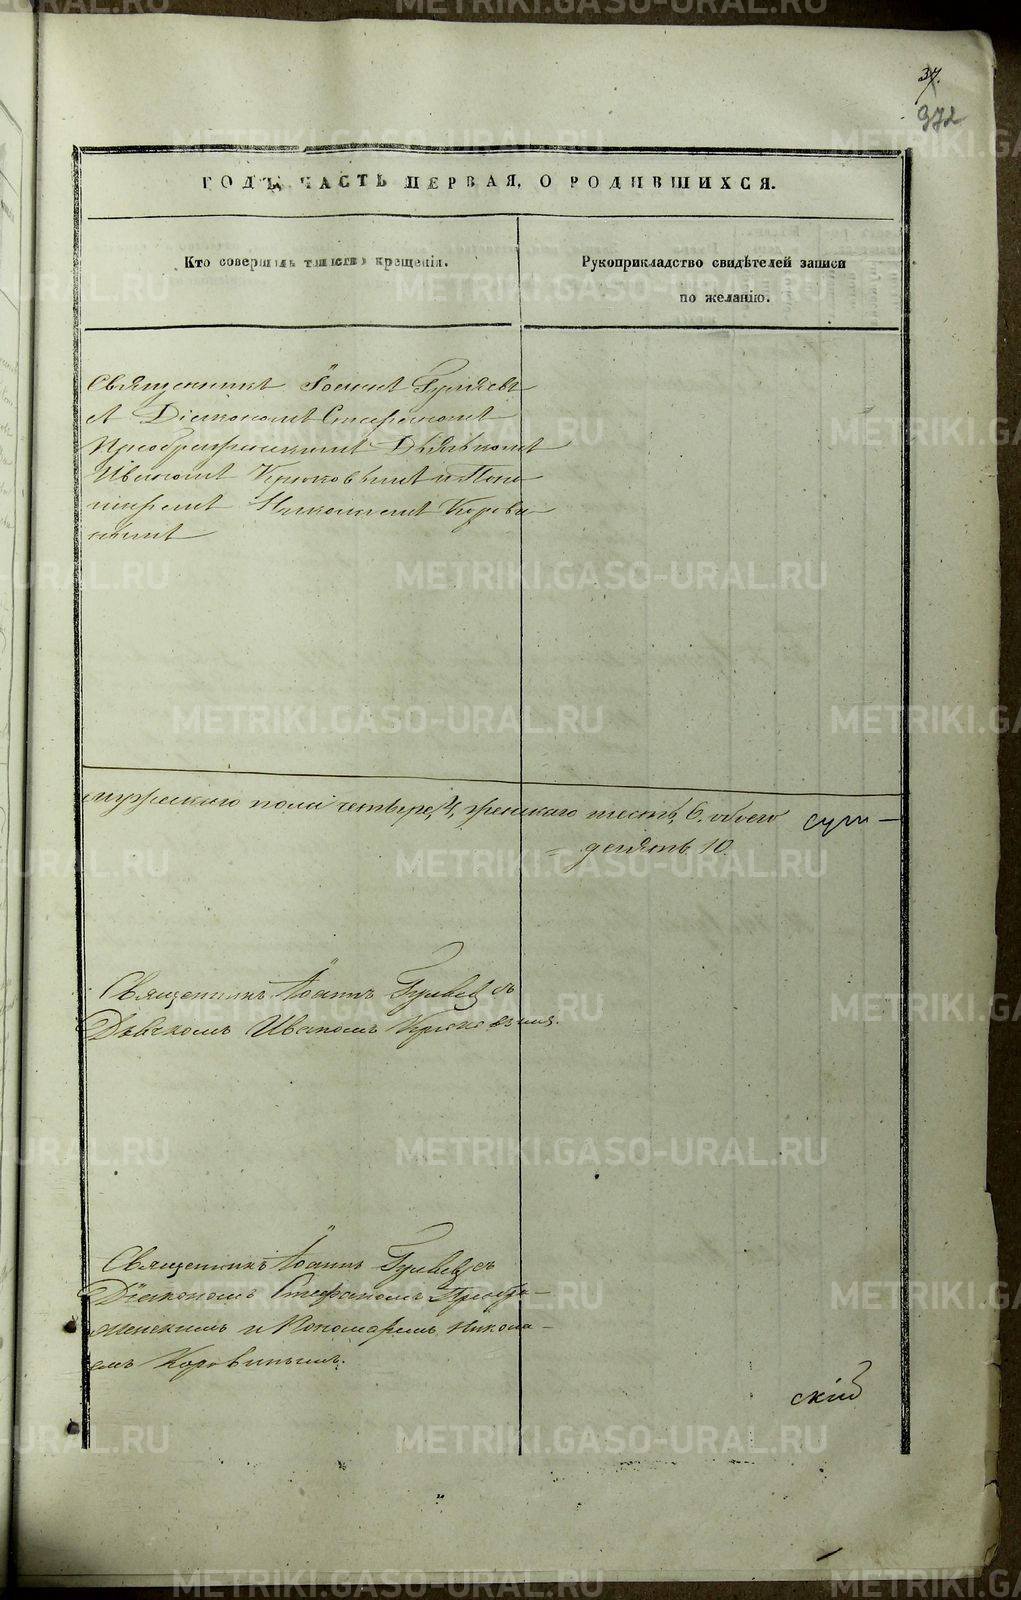 37.
372
ГОДЪ, ЧАСТЬ ПЕРВАЯ, О РОДИВШИХСЯ.
Кто совершилъ таинство крещенія.
Рукоприкладство свидѣтелей записи
по желанію.
Священникъ Іоаннъ Гуляевъ
съ Діакономъ Стефаномъ
Преображенскимъ Дьячкомъ
Иваномъ Крюковымъ и Поно
маремъ Николаемъ Корови
нымъ
мужескаго пола четыре, 4, женскаго шесть, 6, обоего
десять 10.
Священникъ Іоаннъ Гуляевъ съ
Дьячкомъ Иваномъ Крюковымъ.
Священникъ Іоаннъ Гуляевъ съ
Діакономъ Стефаномъ Преобра-
женскимъ и Пономаремъ Никола-
емъ Коровинымъ.
скій
METRIKI.GASO-URAL.RU